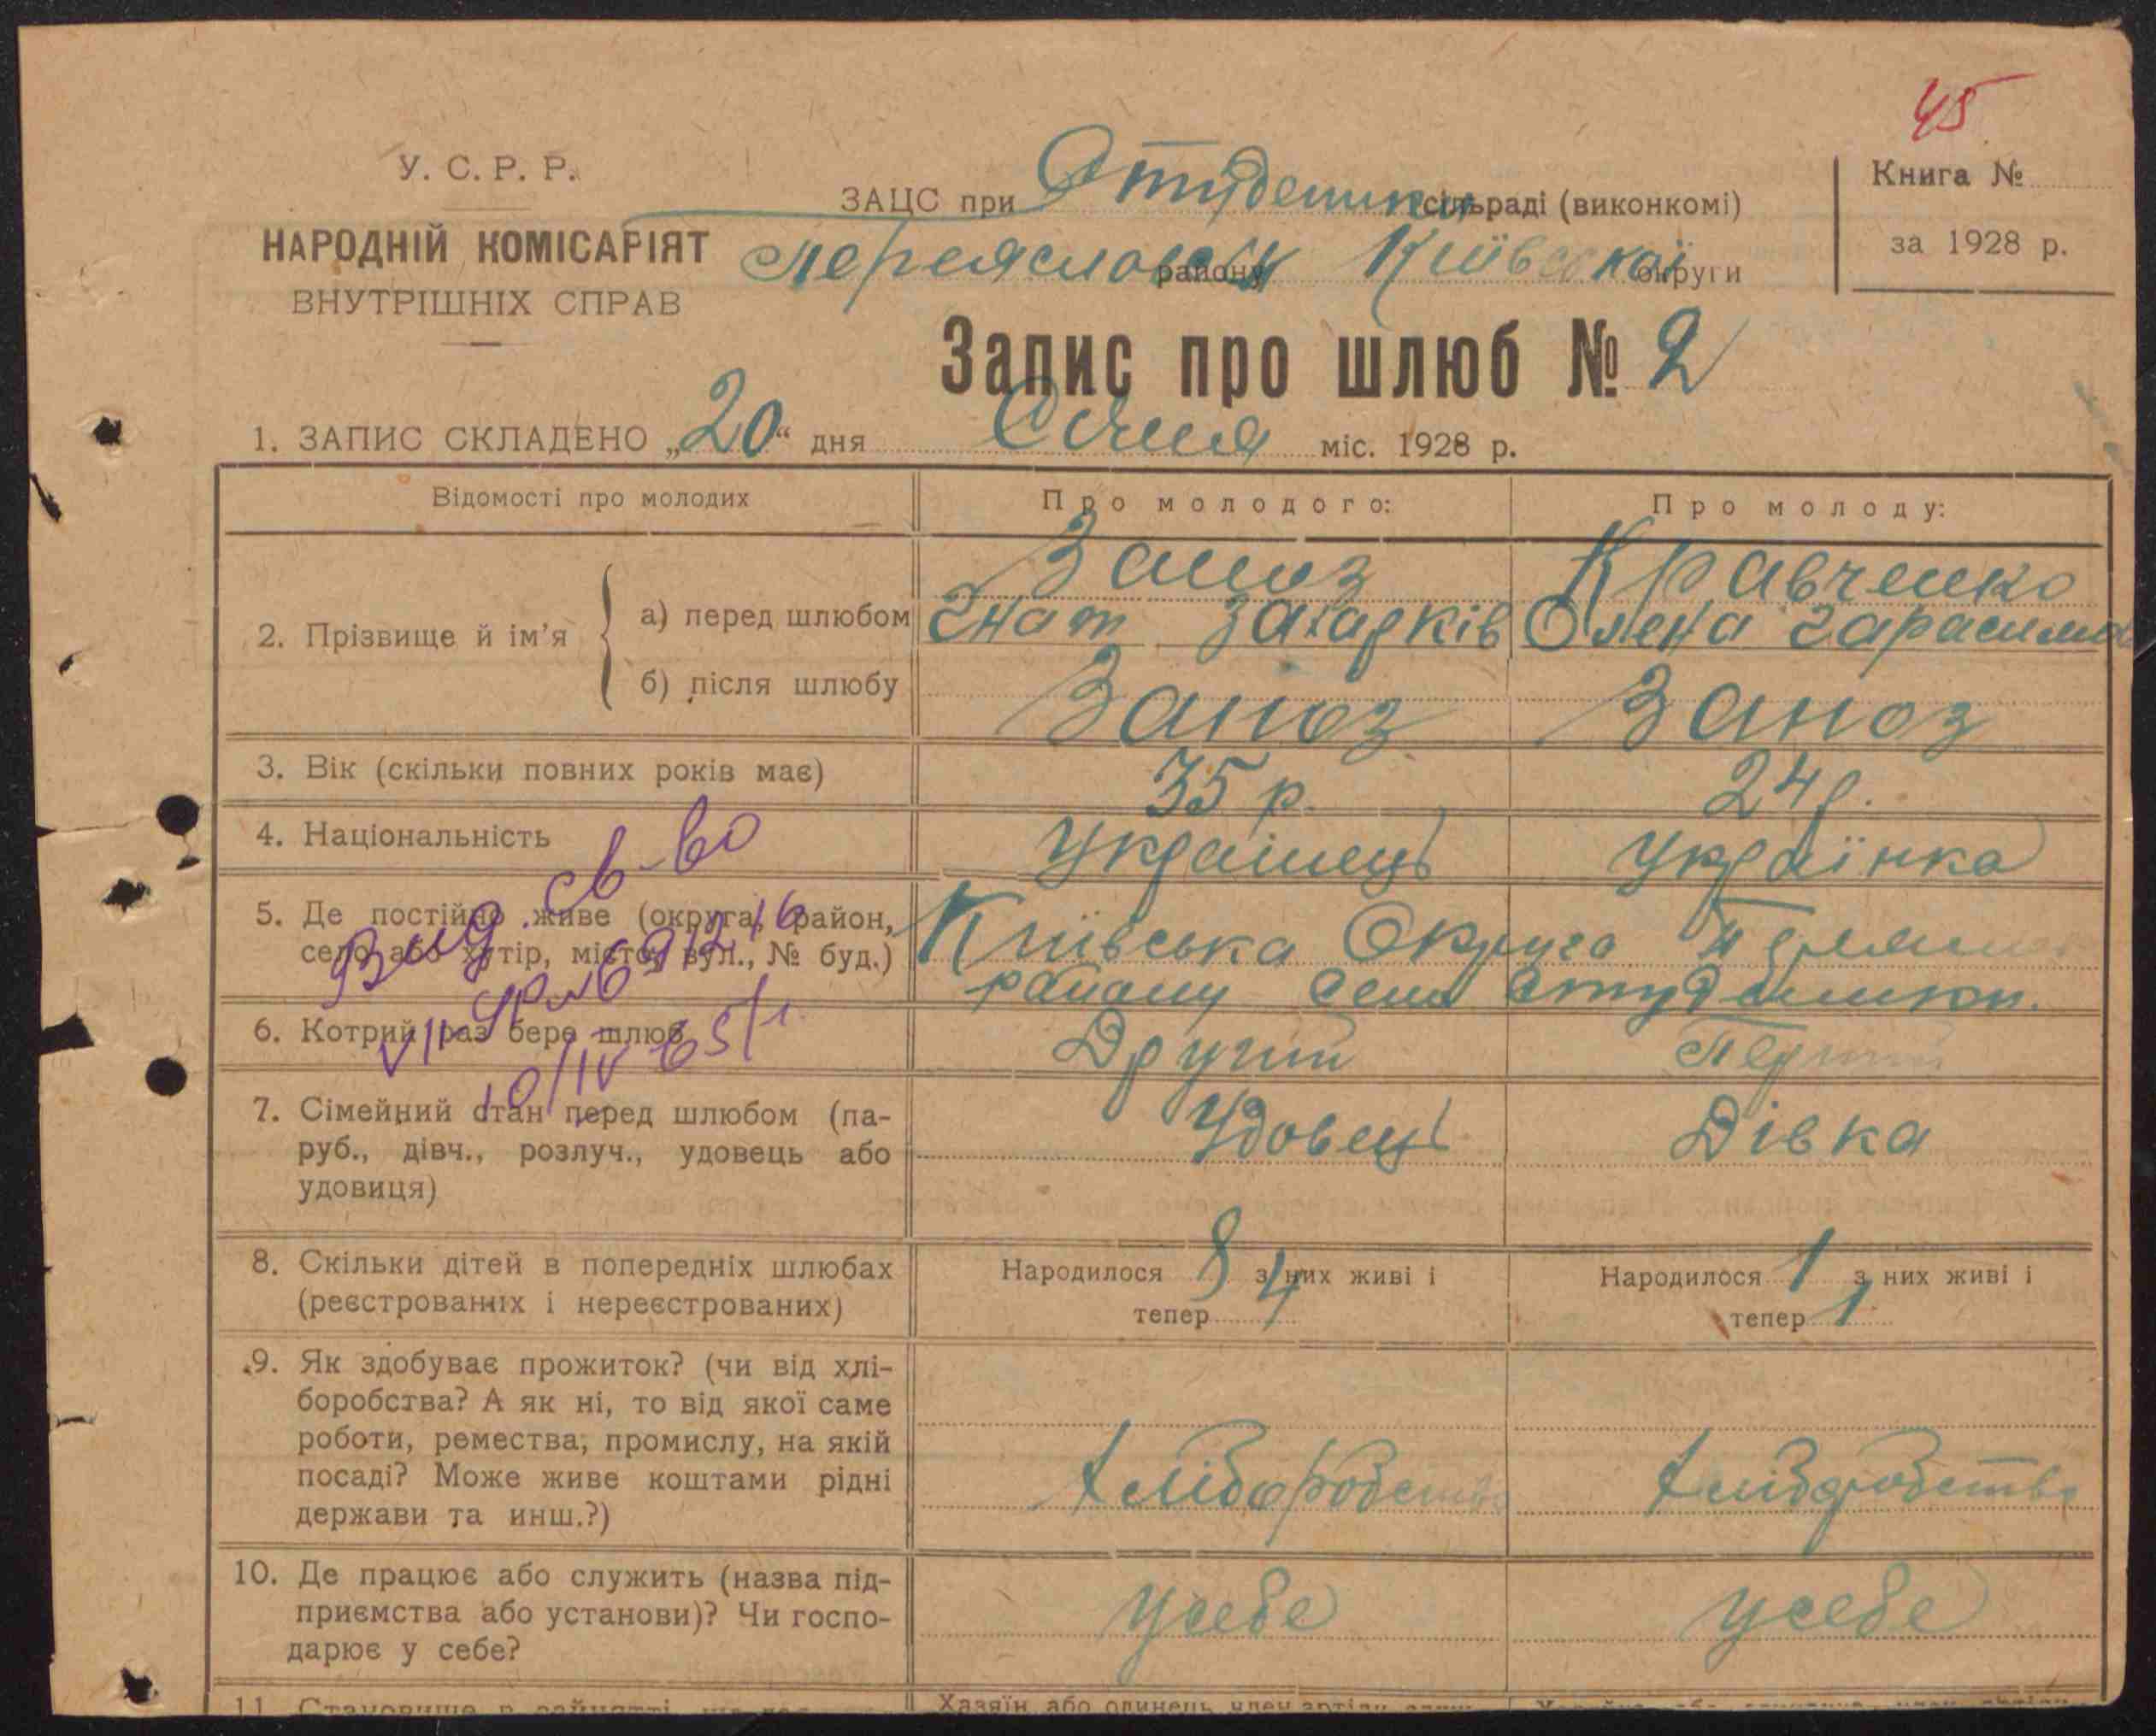 45
У. С. Р. Р.
НАРОДНІЙ КОМІСАРІЯТ
ВНУТРІШНІХ СПРАВ
ЗАЦС при Студеники сільраді (виконкомі)
району Київської округи
Книга №
за 1928 р.
Запис про шлюб № 2
1. ЗАПИС СКЛАДЕНО „20“ дня Січня міс. 1928 р.
Відомості про молодих
Про молодого:
Про молоду:
2. Прізвище й ім’я
а) перед шлюбом
Заноз
Гнат Захарків
Кравченко
Олена
б) після шлюбу
Заноз
Заноз
3. Вік (скільки повних років має)
35 р.
24 р.
4. Національність
Українець
Українка
5. Де постійно живе (округа, район,
село або хутір, місто, вул., № буд.)
Київська Округа
району село Студеники.
6. Котрий раз бере шлюб
Другий
Перший
7. Сімейний стан перед шлюбом (па-
руб., дівч., розлуч., удовець або
удовиця)
Удовець
Дівка
8. Скільки дітей в попередніх шлюбах
(реєстрованих і нереєстрованих)
Народилося 8 з них живі і
тепер 4
Народилося 1 з них живі і
тепер 1
9. Як здобуває прожиток? (чи від хлі-
боробства? А як ні, то від якої саме
роботи, ремества, промислу, на якій
посаді? Може живе коштами рідні
держави та инш.?)
Хліборобство
Хліборобство
10. Де працює або служить (назва під-
приємства або установи)? Чи госпо-
дарює у себе?
усебе
усебе
св-во
10/IV
11. Становище в зайнятті
Хазяїн або одинець, член артілі